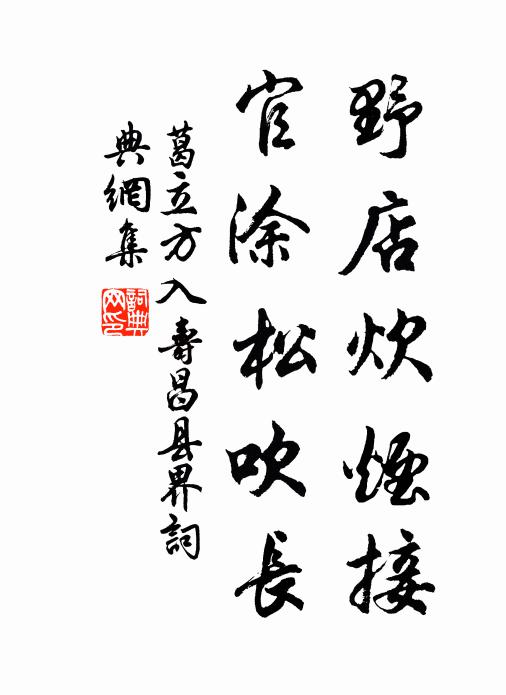 野店炊煙接
官涂松吹長
葛立方入壽昌县界詞
典網集
詞典
网印